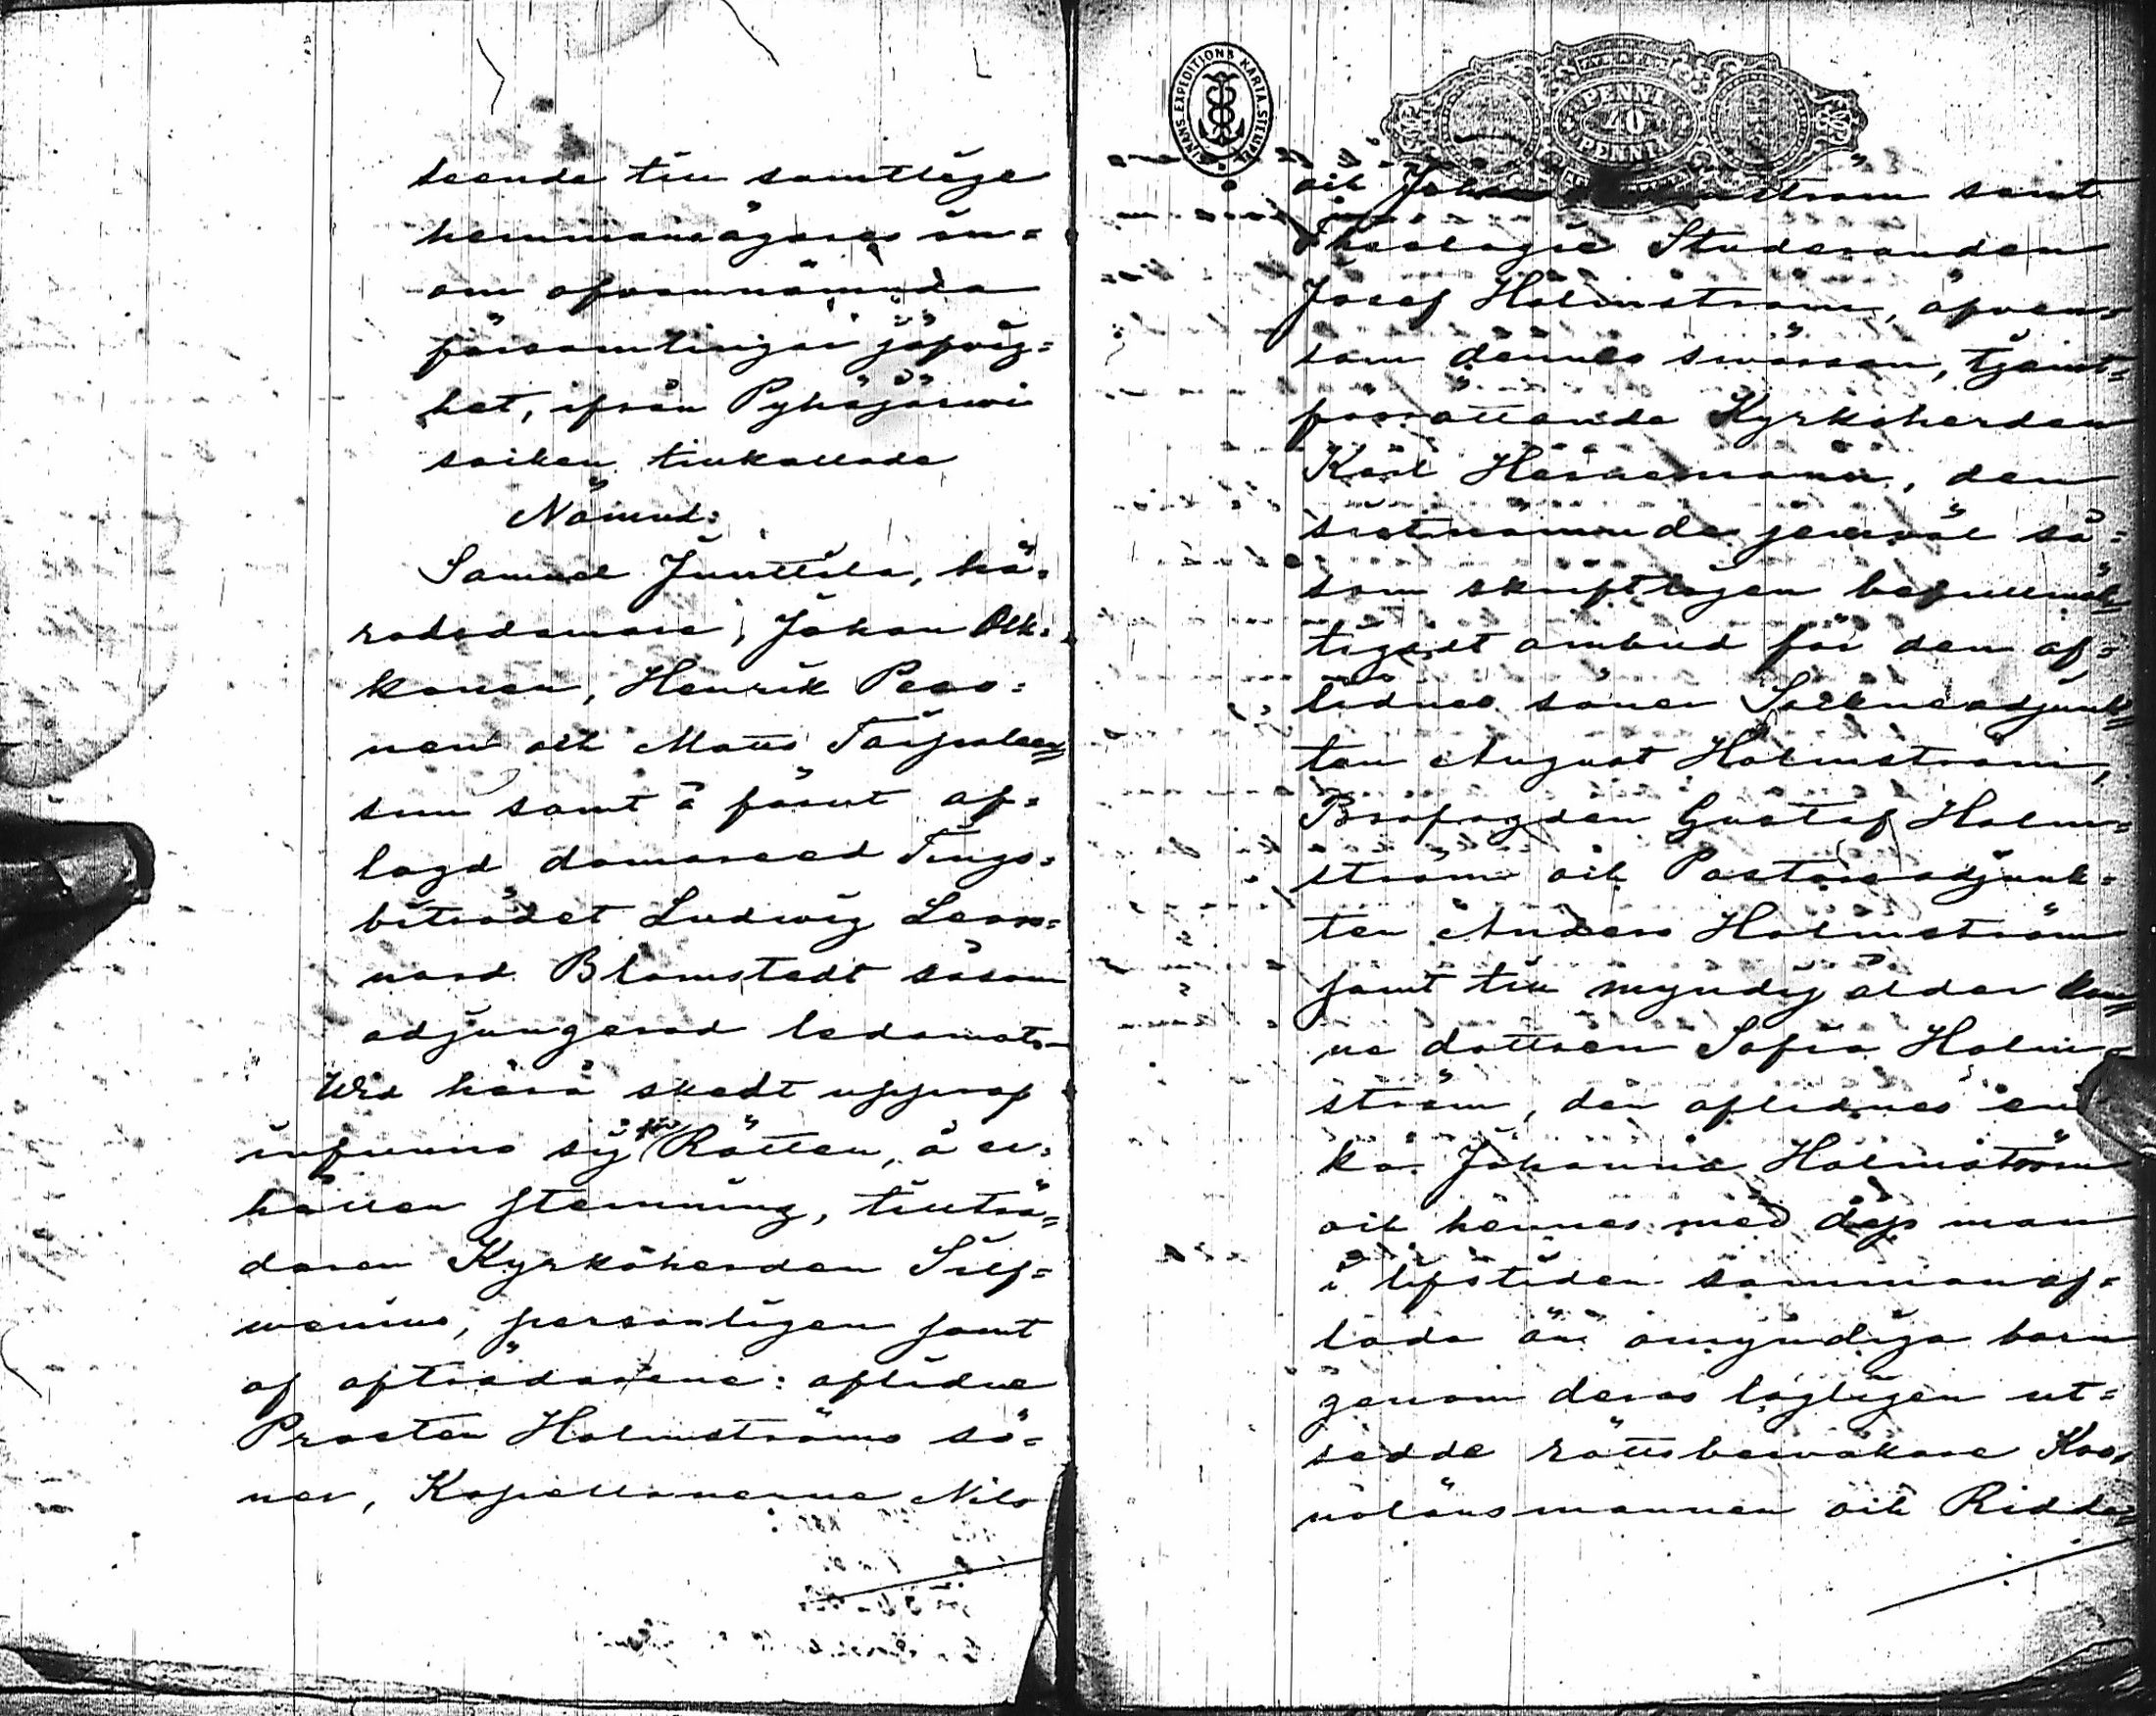 seende till samtlige
hemmansägares in-
om ofvannämnda
församlingar jäfvig-
het, ifrån Pyhäjärwi
socken tillkallade
Nämnd:
Samuel Junttila, hä-
radsdomare, Johan Olk-
konen, Henrik Peso-
nen och Matts Tarjalain-
sun samt å förut af-
lagd domareed Tings-
biträdet Ludwig Leon-
nard Blomstedt såsom
adjungerad ledamot.
Wid härå skedt upprop
infunno sig för Rätten, å er-
hållen stemning, tillträ-
daren Kyrkoherden Silf-
wenius, personligen samt
af afträdarene: aflidne
Prosten Holmströms sö-
ner, Kapellanerne Nils
FINANS EXPEDITIONS KARTA SIGILLATA
PENNI
40
PENNIÄ
och Johan Holmström samt
Theologie Studeranden
Josef Holmström, äfven-
som dennes swåger, tjenst-
förrättande Kyrkoherden
Karl Heikel, den
sistnämnde jemväl så-
som skriftligen befullmäk-
tigadt ombud för den af-
lidnes söner Sockneadjunk-
ten August Holmström,
Brofogden Gustaf Holm-
ström och Pastorsadjunk-
ten Anders Holmström
samt till myndig ålder kom-
ne dottren Sofia Holm-
ström, der aflidnes en-
ka Johanna Holmström
och hennes med dess man
i lifstiden sammanaf-
lade än omyndiga barn
genom deras lagligen ut-
sedde rättsbevakare Kro-
nolänsmannen och Ridda-